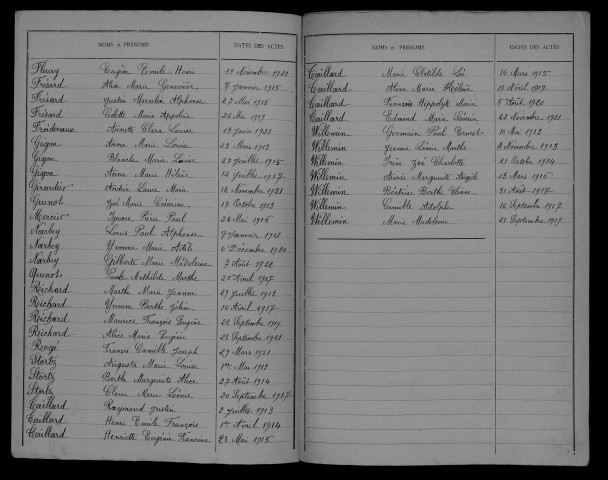 NOMS et PRENOMS DATES DES ACTES
Fleury Eugène Emile Henri 18 Novembre 1921
Frésard Alix Marie Geneviève 7 Janvier 1915
Frésard Justin Marcelin Alphonse 27 Mai 1916
Frésard Colette Marie Appoline 26 Mai 1919
Froidevaux Annette Clara Louise 13 Juin 1921
Gigon Anna Marie Louise 23 Mars 1913
Gigon Blanche Marie Louise 27 Juillet 1915
Gigon Anna Marie Hélène 14 Juillet 1917
Girardier Andrée Laure Marie 18 Novembre 1921
Guenot Zoé Marie Césarine 17 Octobre 1913
Mercier Ignace Pierre Paul 26 Mai 1916
Narbey Louis Paul Alphonse 7 Janvier 1913
Narbey Yvonne Marie 6 Décembre 1920
Narbey Gilberte Marie Madeleine 7 Août 1921
Quenot Paule Mathilde Marthe 25 Avril 1917
Reichard Marthe Marie Jeanne 29 Juillet 1913
Reichard Yvonne Berthe 16 Avril 1917
Reichard Maurice François Eugène 22 Septembre 1919
Reichard Alice Marie Eugénie 23 Septembre 1921
Rougé Francis Camille Joseph 29 Mars 1921
Stortz Augusta Marie Louise 1er Mai 1913
Stortz Berthe Marguerite Alice 27 Août 1914
Stortz Claire Marie Léonie 20 Septembre 1917
Taillard Raymond Justin 2 Juillet 1913
Taillard Henri Emile François 1er Avril 1914
Taillard Henriette Eugénie Francine 23 Mai 1915
NOMS et PRENOMS DATES DES ACTES
Taillard Marie Clotilde Léa 16 Mars 1915
Taillard Anna Marie Hélène 18 Avril 1917
Taillard François Hippolyte Marie 5 Août 1920
Taillard Edmond Marie 22 Novembre 1921
Willemin Germain Paul Ernest 10 Mai 1913
Willemin Jeanne Léonie Marthe 2 Novembre 1913
Willemin Irène Zoé Charlotte 21 Octobre 1914
Willemin Aimée Marguerite Angèle 13 Mars 1916
Willemin Béatrice Berthe 31 Août 1917
Willemin Camille Adolphe 16 Septembre 1917
Willemin Marie Madeleine 21 Septembre 1919